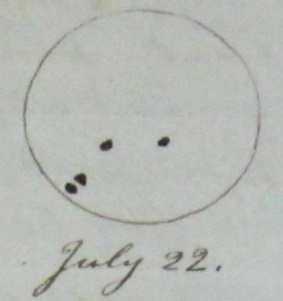 July 22.